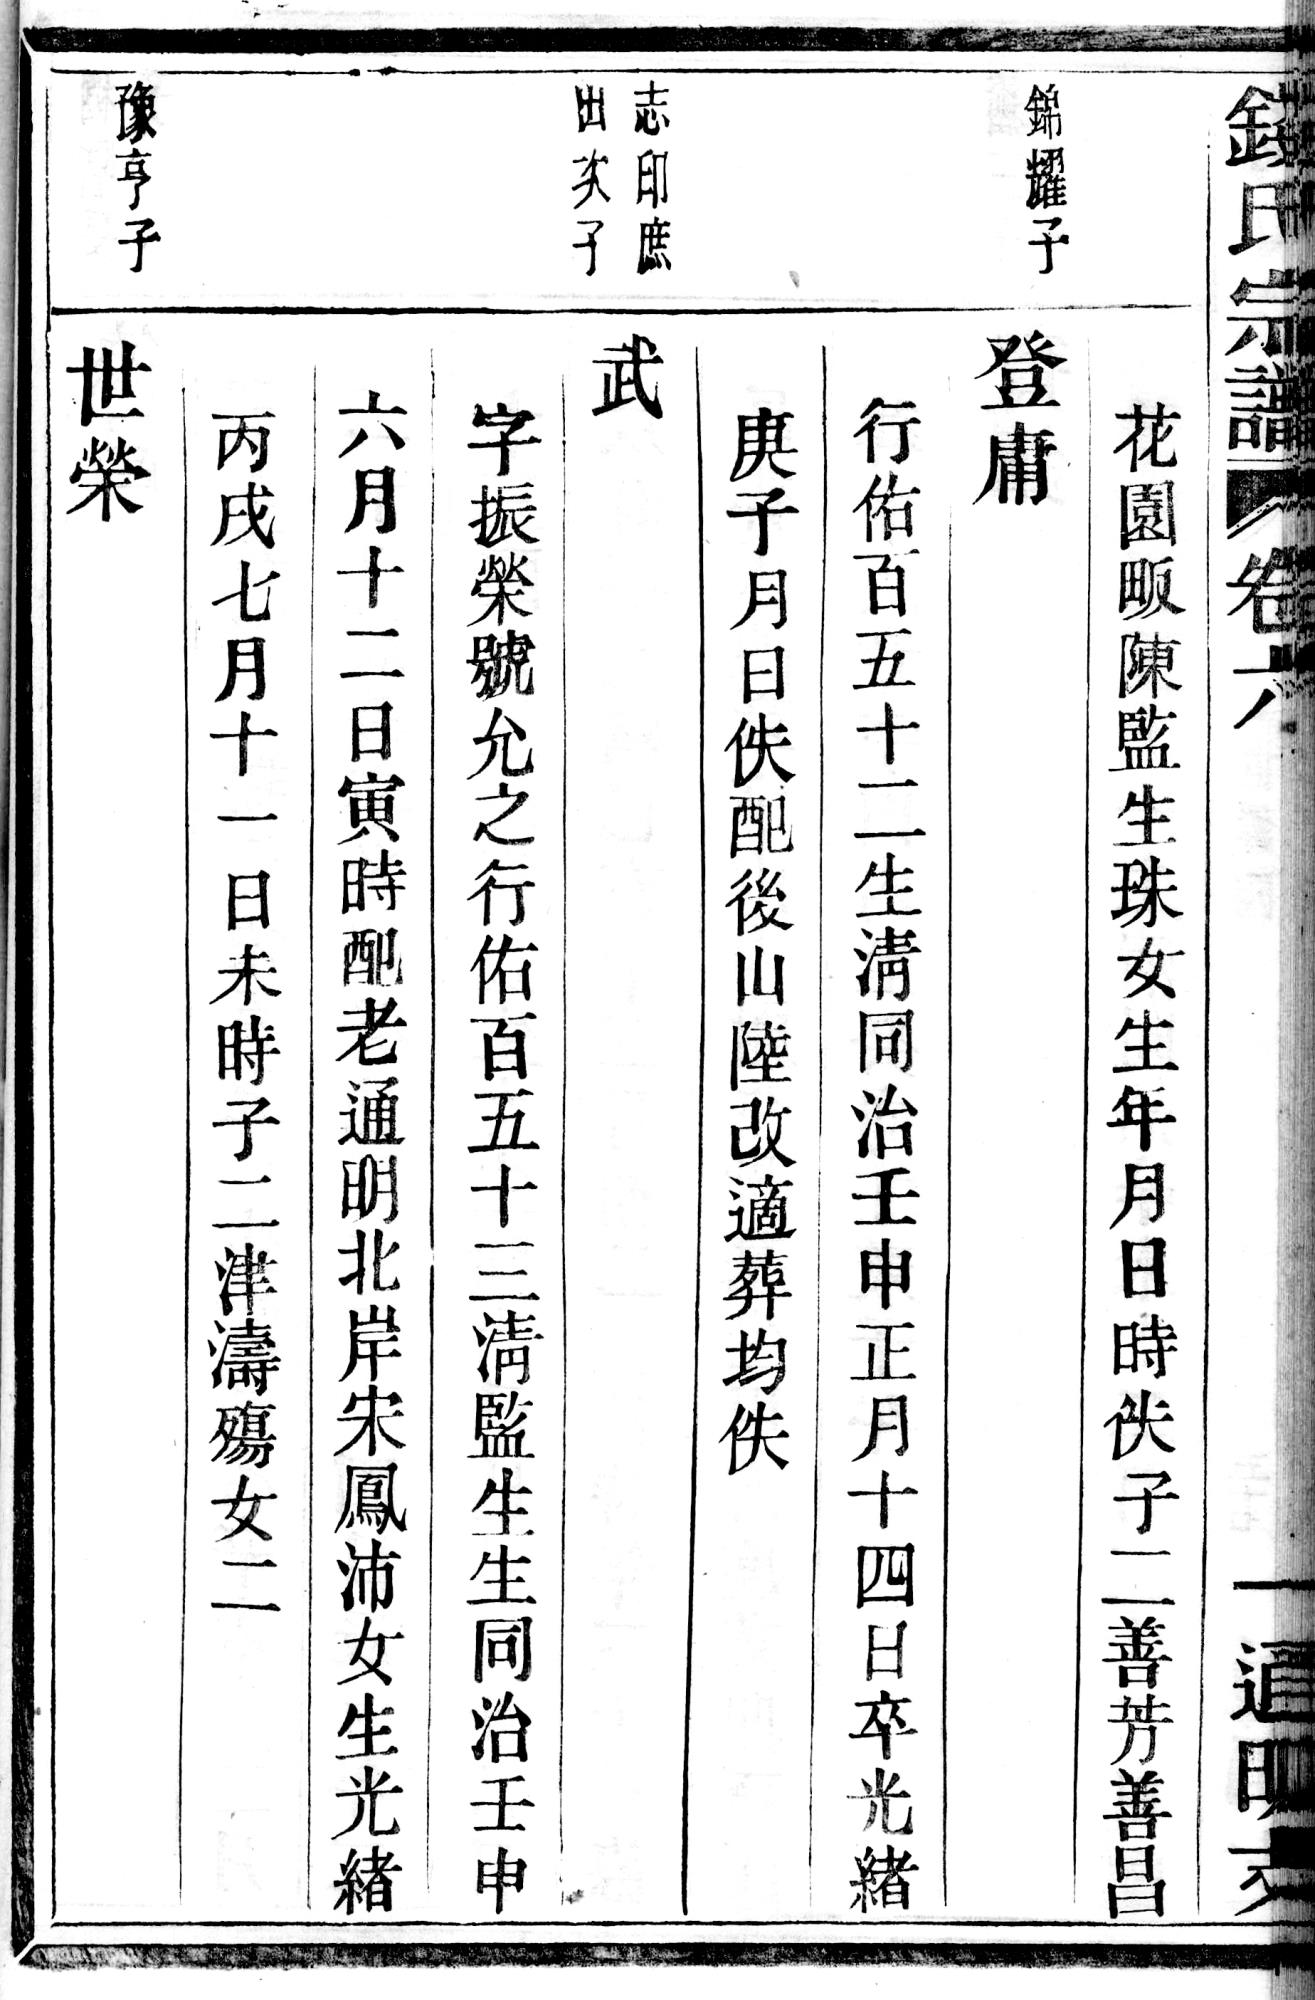 錢氏宗譜 卷六 一 通明支
花園畈陳監生珠女生年月日時佚子二善芳善昌
錦耀子
登庸
行佑百五十二生淸同治壬申正月十四日卒光緒
庚子月日佚配後山陸改適葬均佚
志印庶
出次子
武
字振榮號允之行佑百五十三淸監生生同治壬申
六月十二日寅時配老通明北岸宋鳳沛女生光緒
丙戌七月十一日未時子二津濤殤女二
豫亨子
世榮